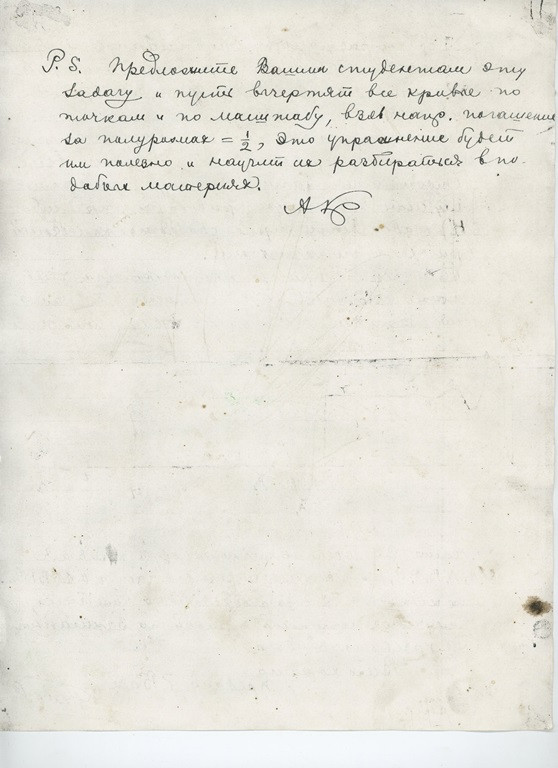 11
P.S. Предложите Вашим студентам эту
задачу и пусть вычертят все кривые по
точкам и по масштабу, взяв напр. погашение
за полуразмах = 1/2, это упражнение будет
им полезно и научит их разбираться в по-
добных материях.
АК